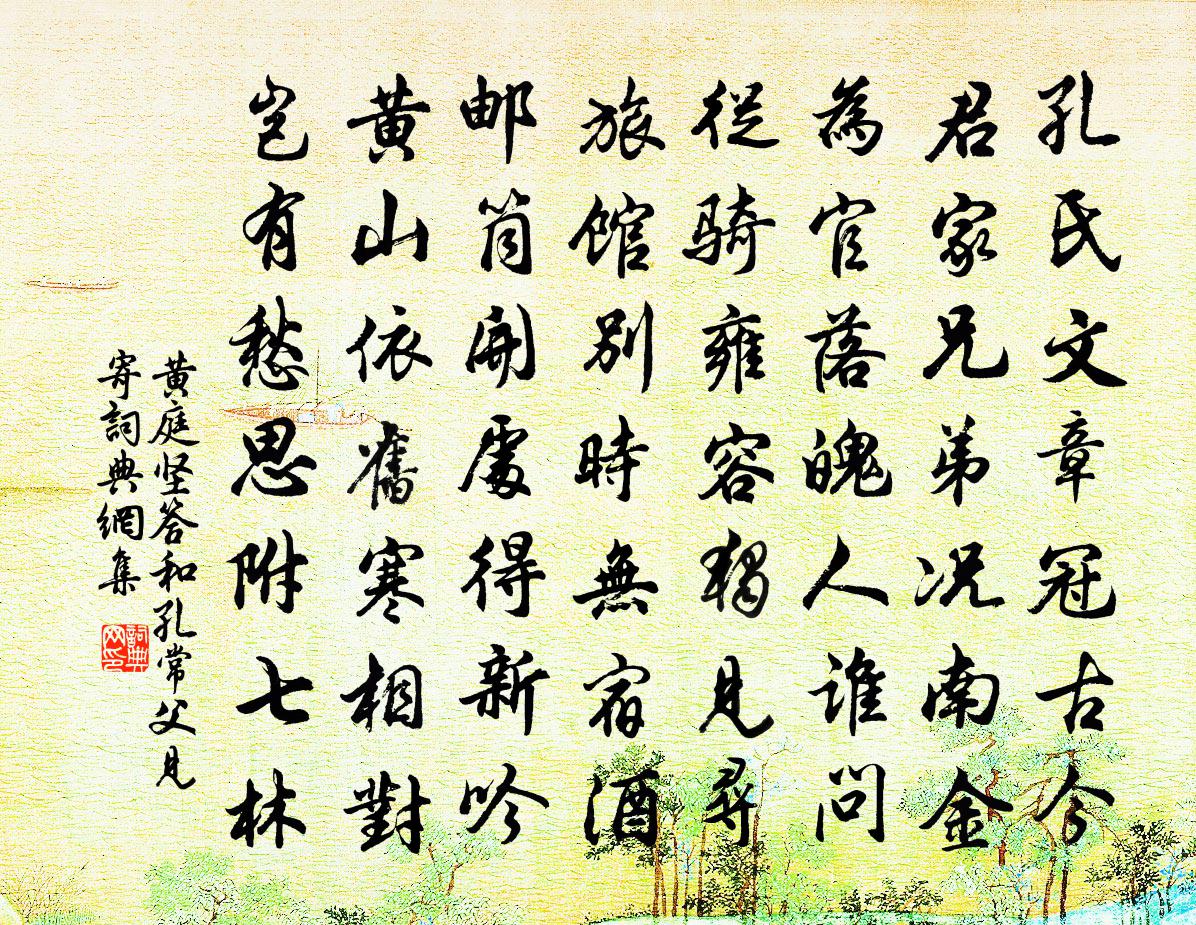 孔氏文章冠古今
君家兄弟况南金
為官落魄人誰問
從騎雍容獨見尋
旅館別時無宿酒
邮筒開處得新吟
黄山依舊寒相對
豈有愁思附七林
黄庭坚答和孔常父見
寄詞典網集
詞典网印